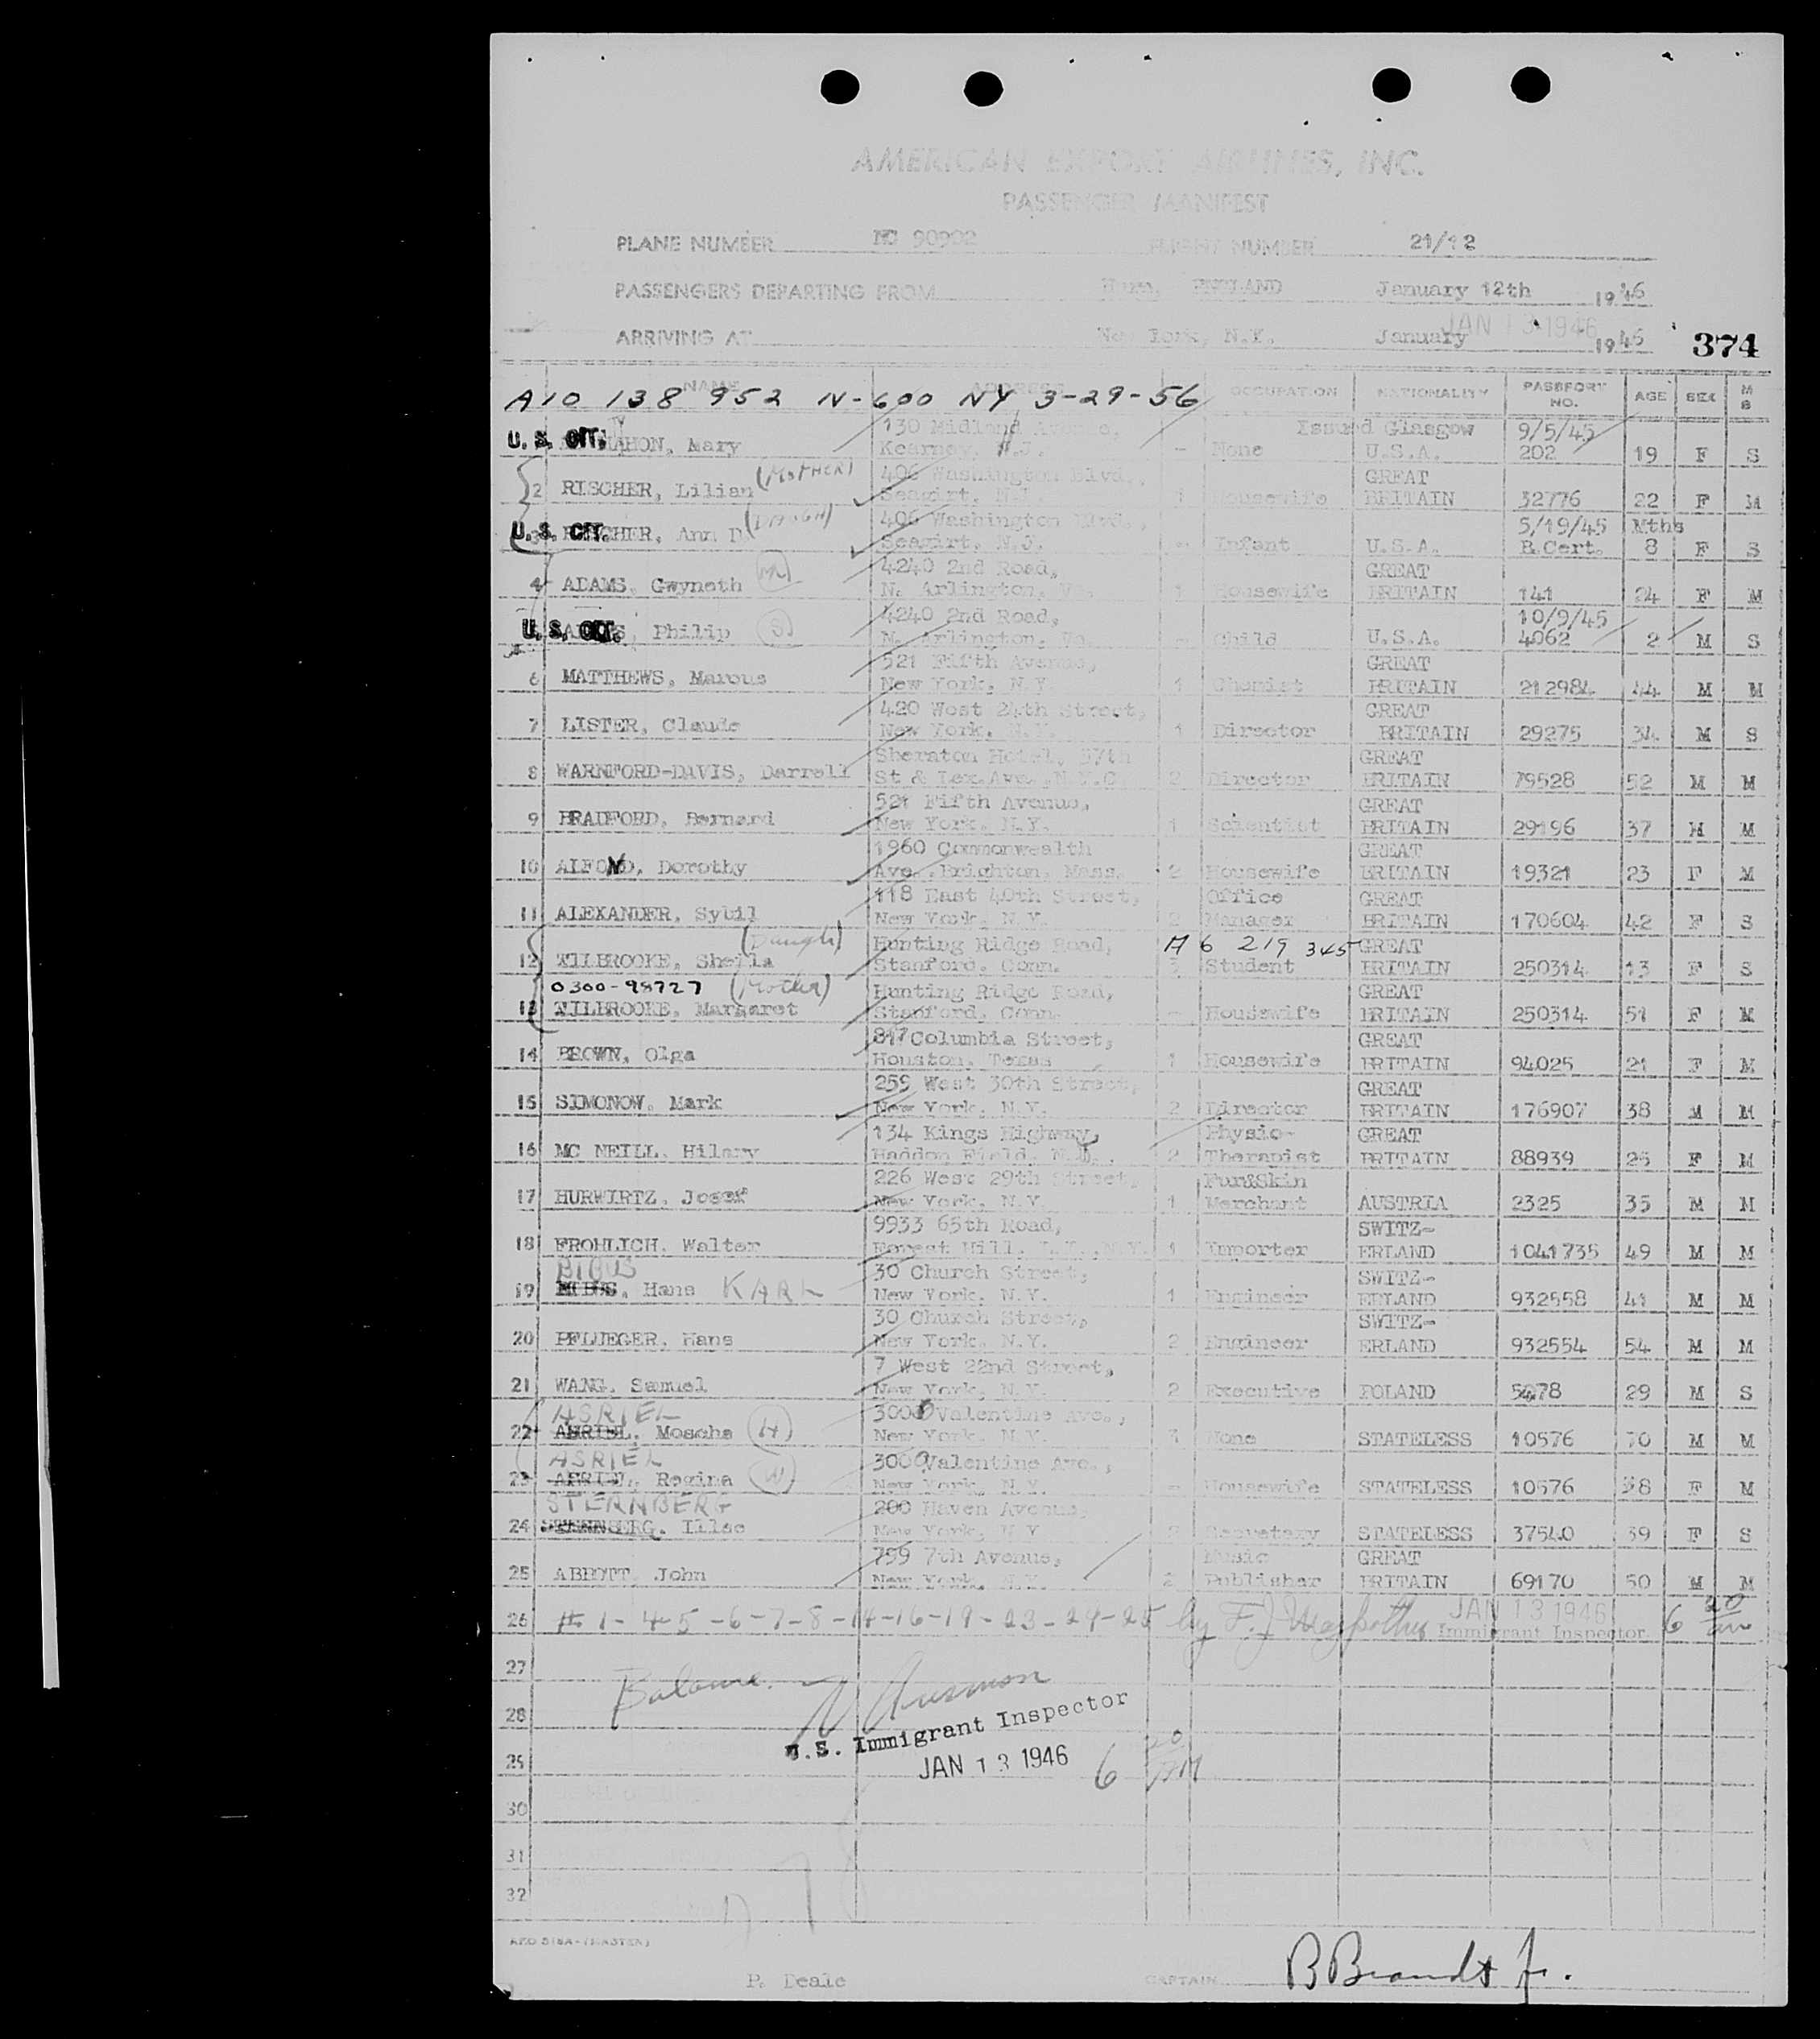 AMERICAN EXPORT AIRLINES, INC.
PASSENGER MANIFEST
PLANE NUMBER NC 90902 FLIGHT NUMBER 21/12
PASSENGERS DEPARTING FROM Hurn, ENGLAND January 12th 1946
ARRIVING AT New York, N.Y. January JAN 13 1946 1946
374
NAME ADDRESS OCCUPATION NATIONALITY PASSPORT NO. AGE SEX M S
A10 138 952 N-600 NY 3-29-56
130 Midland Avenue, Issued Glasgow 9/5/45
U.S. CIT. Mary Kearney, N.J. - None U.S.A. 202 19 F S
406 Washington Blvd., GREAT
2 RISCHER, Lilian (MOTHER) Seagirt, N.J. 1 Housewife BRITAIN 32776 22 F M
406 Washington Blvd., 5/19/45 Mths
3 U.S. CIT. RISCHER, Ann D. (DAUGH) Seagirt, N.J. - Infant U.S.A. B.Cert. 8 F S
4240 2nd Road, GREAT
4 ADAMS, Gwyneth (M) N. Arlington, Va. 1 Housewife BRITAIN 141 24 F M
4240 2nd Road, 10/9/45
U.S. CIT. ADAMS, Philip (S) N. Arlington, Va. - Child U.S.A. 4062 2 M S
521 Fifth Avenue, GREAT
6 MATTHEWS, Marcus New York, N.Y. 1 Chemist BRITAIN 212984 44 M M
420 West 24th Street, GREAT
7 LISTER, Claude New York, N.Y. 1 Director BRITAIN 29275 34 M S
Sheraton Hotel, 37th GREAT
8 WARNFORD-DAVIS, Darrell St & Lex.Ave. N.Y.C. 2 Director BRITAIN 79528 52 M M
521 Fifth Avenue, GREAT
9 BRADFORD, Bernard New York, N.Y. 1 Scientist BRITAIN 29196 37 M M
1960 Commonwealth GREAT
10 ALFOND, Dorothy Ave. Brighton, Mass. 2 Housewife BRITAIN 19321 23 F M
118 East 40th Street, Office GREAT
11 ALEXANDER, Sybil New York, N.Y. 2 Manager BRITAIN 170604 42 F S
(Daugh) Hunting Ridge Road, A 6 219 345 GREAT
12 TILBROOKE, Sheila Stanford, Conn. 3 Student BRITAIN 250314 13 F S
0300-98727 (Mother) Hunting Ridge Road, GREAT
13 TILBROOKE, Margaret Stanford, Conn. - Housewife BRITAIN 250314 51 F M
817 Columbia Street, GREAT
14 BROWN, Olga Houston, Texas 1 Housewife BRITAIN 94025 21 F M
259 West 30th Street, GREAT
15 SIMONOW, Mark New York, N.Y. 2 Director BRITAIN 176907 38 M M
134 Kings Highway, Physio- GREAT
16 MC NEILL, Hilary Haddon Field, N.J. 2 Therapist BRITAIN 88939 25 F M
226 West 29th Street, Fur&Skin
17 HURWIRTZ, Josef New York, N.Y. 1 Merchant AUSTRIA 2325 35 M M
9933 65th Road, SWITZ-
18 FROHLICH, Walter Forest Hill, L.I., N.Y. 1 Importer ERLAND 1041735 49 M M
BIBUS 30 Church Street, SWITZ-
19 Hans KARL New York, N.Y. 1 Engineer ERLAND 932558 41 M M
30 Church Street, SWITZ-
20 PFLUEGER, Hans New York, N.Y. 2 Engineer ERLAND 932554 54 M M
7 West 22nd Street,
21 WANG, Samuel New York, N.Y. 2 Executive POLAND 5478 29 M S
ASRIEL 3000 Valentine Ave.,
22 Mosche (H) New York, N.Y. 3 None STATELESS 10576 70 M M
ASRIEL 3000 Valentine Ave.,
23 Regina (W) New York, N.Y. - Housewife STATELESS 10576 58 F M
STERNBERG 200 Haven Avenue,
24 Illse New York, N.Y. 2 Secretary STATELESS 37540 39 F S
799 7th Avenue, Music GREAT
25 ABBOTT, John New York, N.Y. 2 Publisher BRITAIN 69170 50 M M
26 # 1-4-5-6-7-8-14-16-19-23-24-25 by F.J. JAN 13 1946 Immigrant Inspector 6 20 am
27
Balance.
28
U.S. Immigrant Inspector
29 JAN 13 1946 6 20 AM
30
31
32
P. Deale CAPTAIN B Brandt Jr.